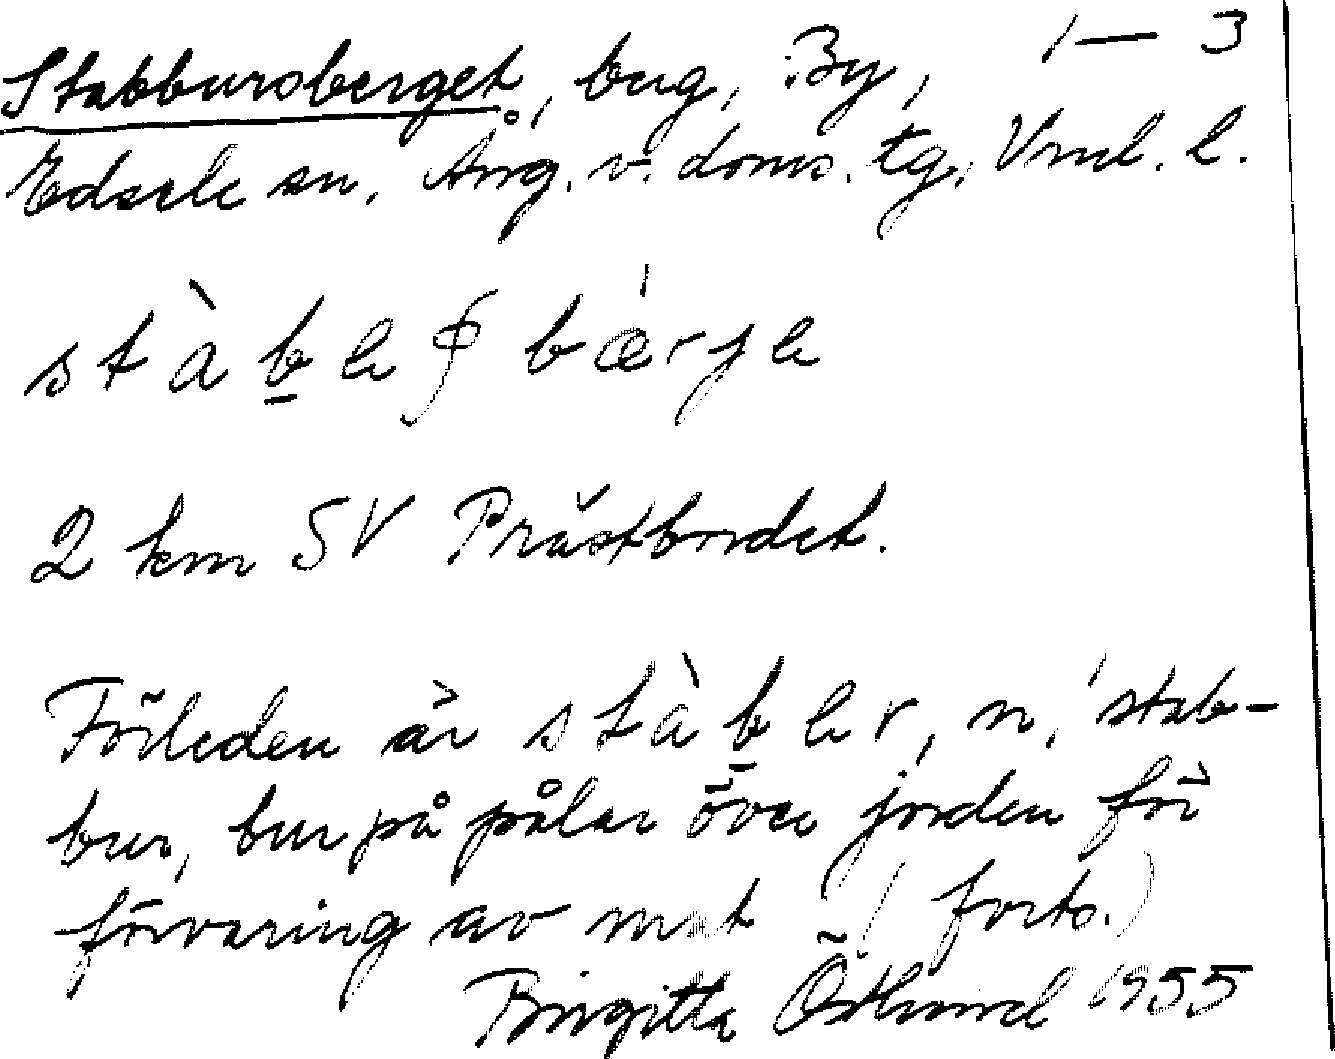 Stabbursberget, berg, By, 1—3
Edsele sn, Ång. v. doms. tg, Vnrl. l.
2 km SV Prästbordet.
Förleden är stàber, n, 'stab-
bur, bur på pålar över jorden för
förvaring av mat' (forts.)
Birgitta Östlund 1955